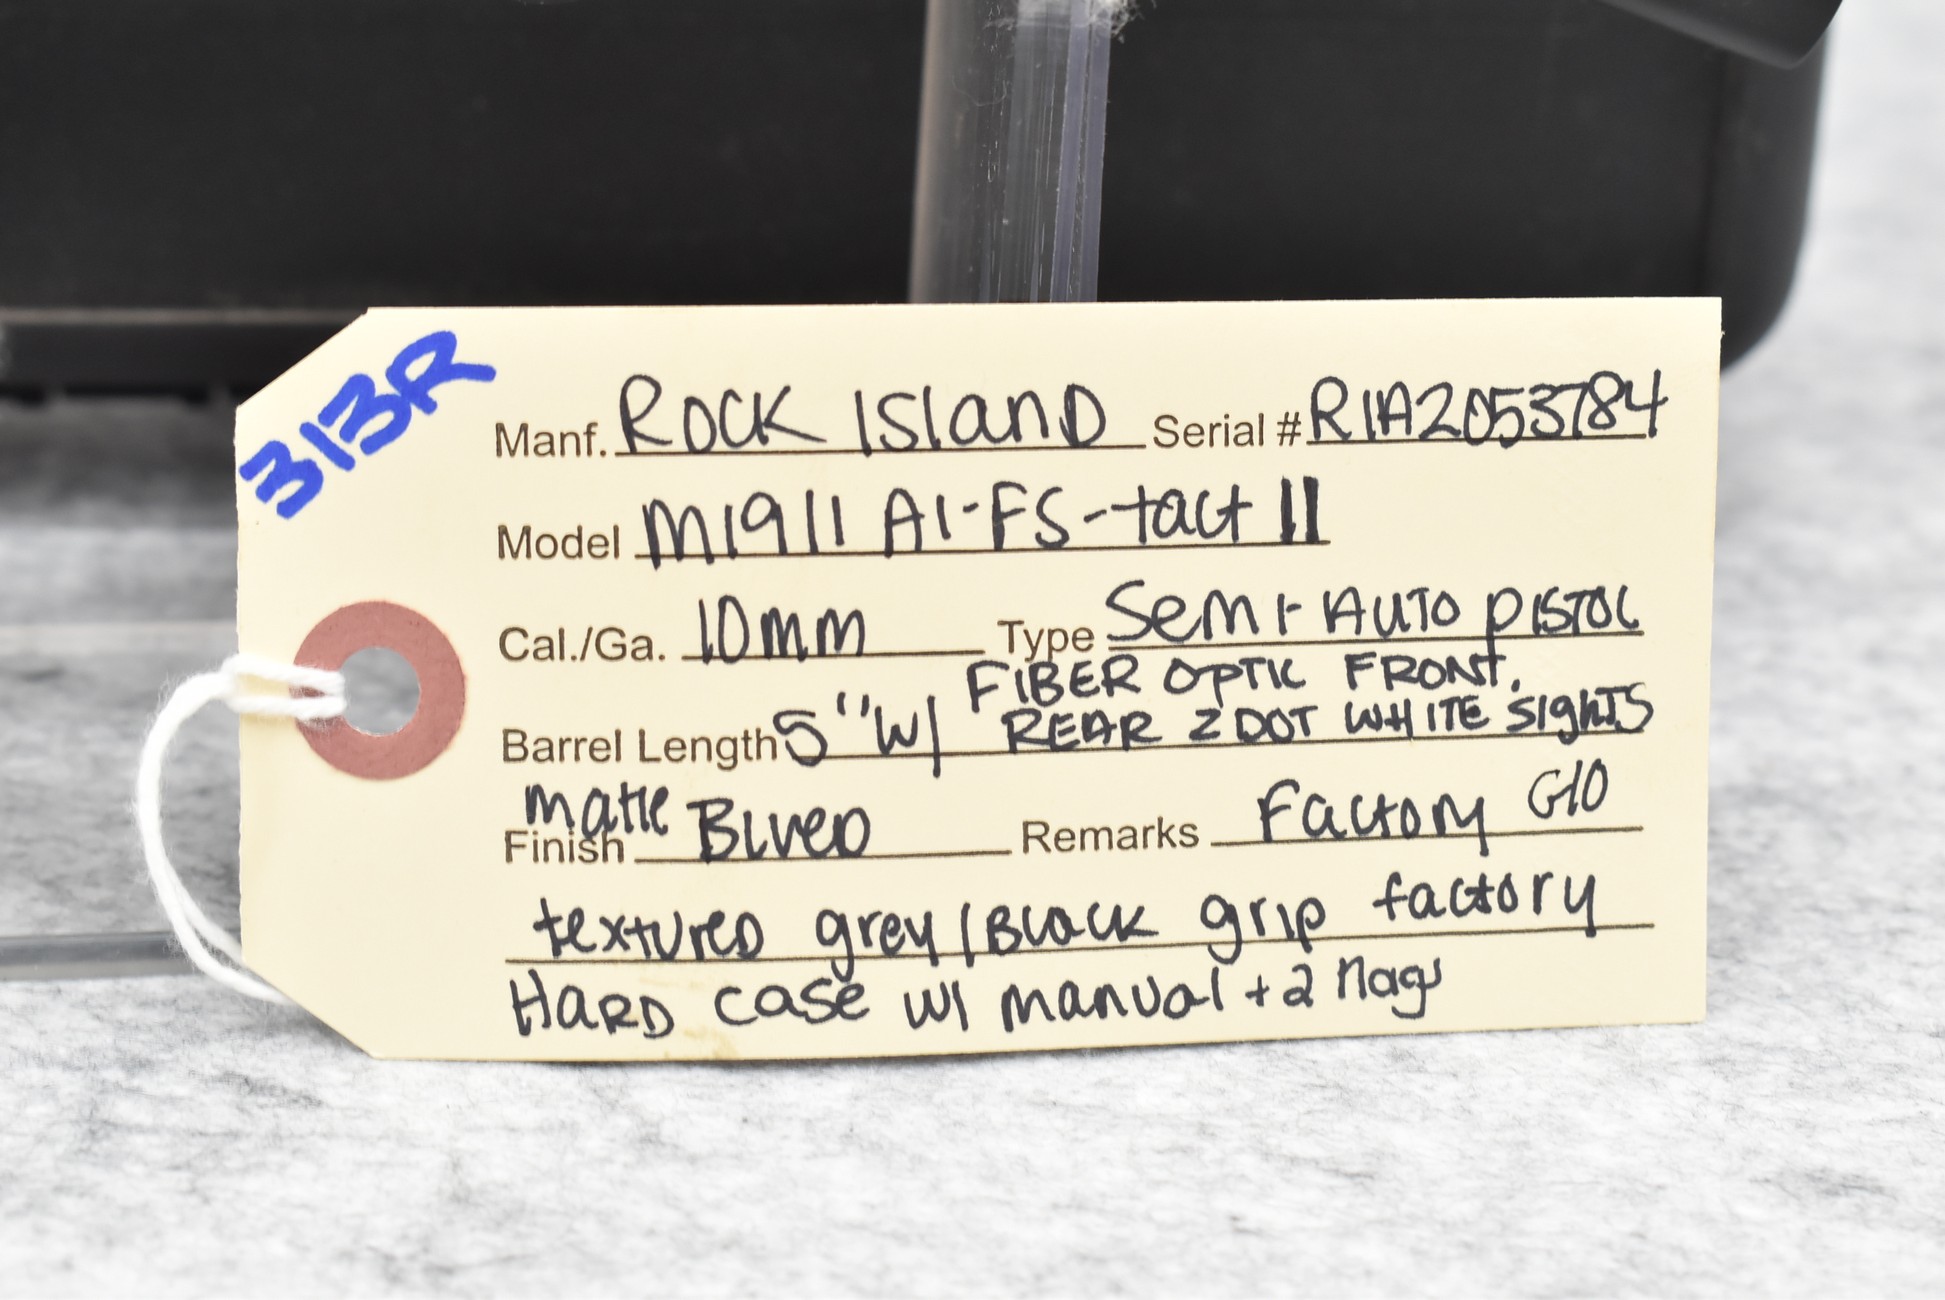 313R
Manf. ROCK ISlanD Serial # RIA2053784
Model M1911 A1-FS-tact II
Cal./Ga. 10mm Type Semi-AUTO PISTOL
FIBER OPTIC FRONT,
Barrel Length 5" W/ REAR 2 DOT WHITE SIghTS
matte
Finish BlueD Remarks Factory G10
textureD grey/Black grip factory
HARD case w/ manual + 2 Mags